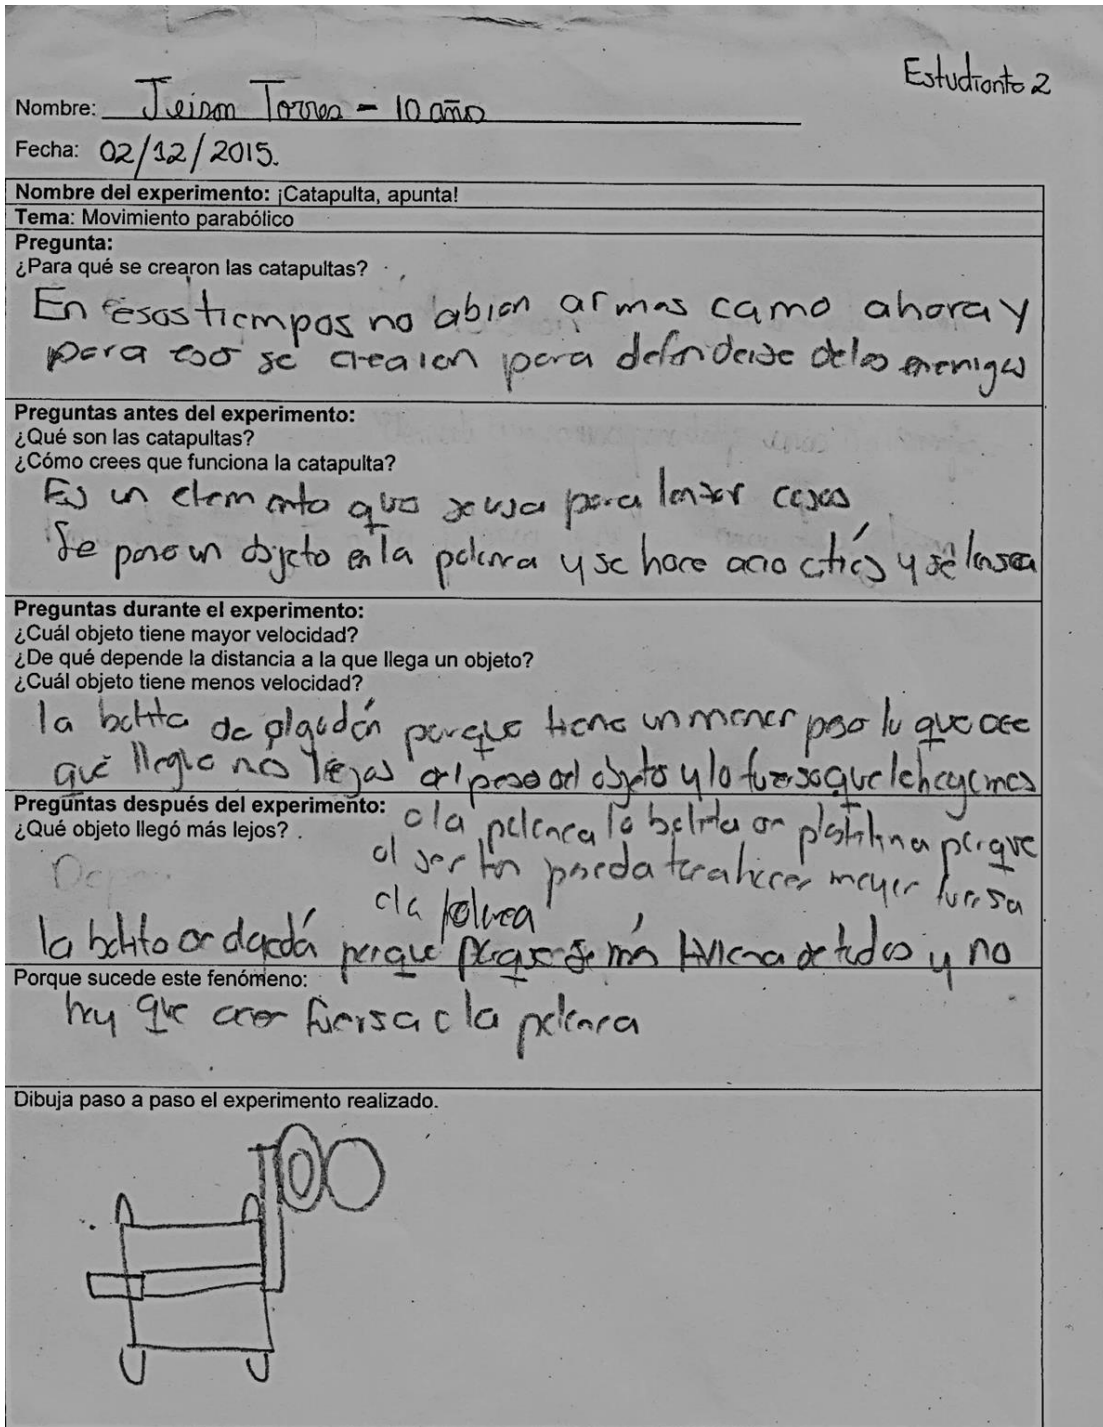 Estudiante 2
Nombre: Jeison Torres - 10 años
Fecha: 02/12/2015.
Nombre del experimento: ¡Catapulta, apunta!
Tema: Movimiento parabólico
Pregunta:
¿Para qué se crearon las catapultas?
En esos tiempos no abian armas como ahora y
para eso se crearon para defenderse de los enemigos
Preguntas antes del experimento:
¿Qué son las catapultas?
¿Cómo crees que funciona la catapulta?
Es un elemento que se usa para lanzar cosas
Se pone un objeto en la palanca y se hace acia atrás y se lansa
Preguntas durante el experimento:
¿Cuál objeto tiene mayor velocidad?
¿De qué depende la distancia a la que llega un objeto?
¿Cuál objeto tiene menos velocidad?
la bolita de algodón porque tiene un menor peso lo que ace
que llegue más lejos del peso del objeto y la fuersa que le hagamos
Preguntas después del experimento:
a la palanca la bolita de plastilina porque
¿Qué objeto llegó más lejos?
al ser tan pesada toca hacer mayor fuersa
a la palanca
la bolita de porque es más liviana de todas y no
Porque sucede este fenómeno:
hay que acer fuersa a la palanca
Dibuja paso a paso el experimento realizado.